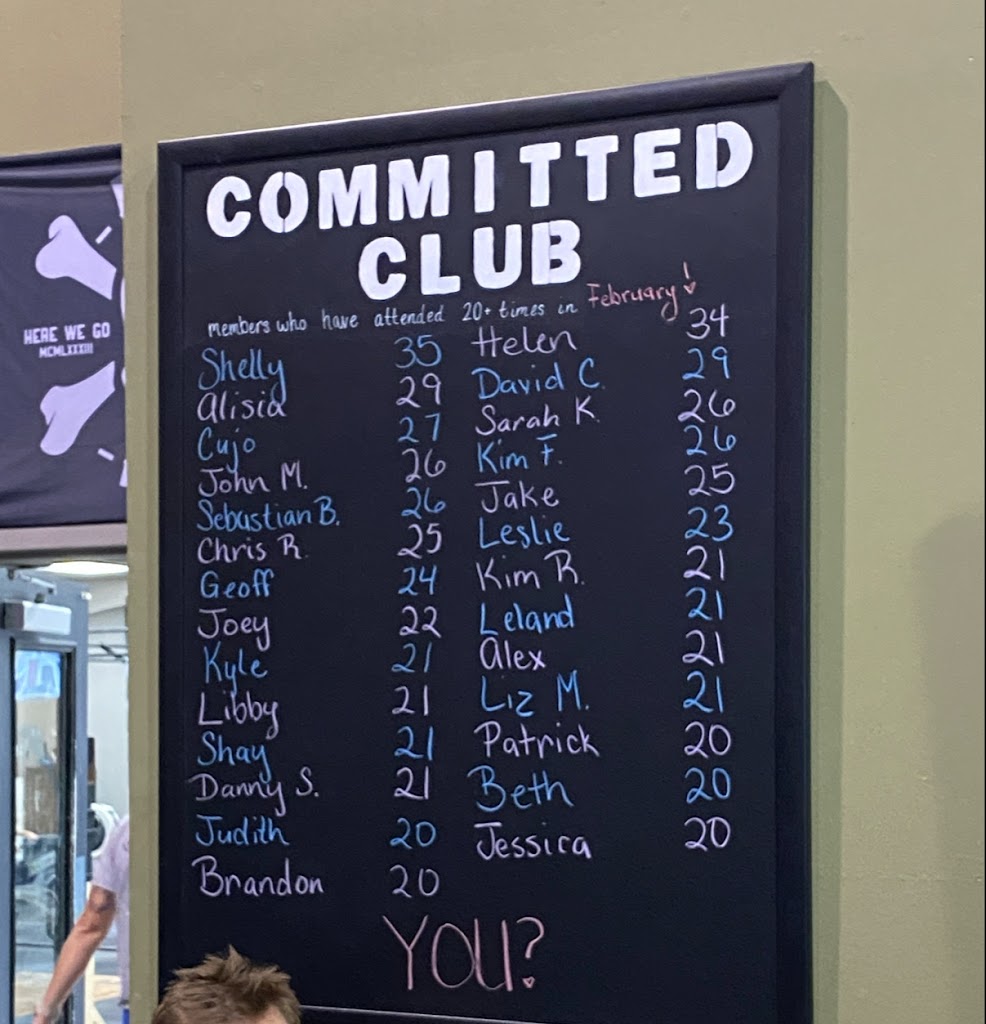 COMMITTED
CLUB
members who have attended 20+ times in February!
Shelly 35 Helen 34
Alisia 29 David C. 29
Cujo 27 Sarah K. 26
John M. 26 Kim F. 26
Sebastian B. 26 Jake 25
Chris R. 25 Leslie 23
Geoff 24 Kim R. 21
Joey 22 Leland 21
Kyle 21 Alex 21
Libby 21 Liz M. 21
Shay 21 Patrick 20
Danny S. 21 Beth 20
Judith 20 Jessica 20
Brandon 20
YOU?
HERE WE GO
MCMLXXXIII